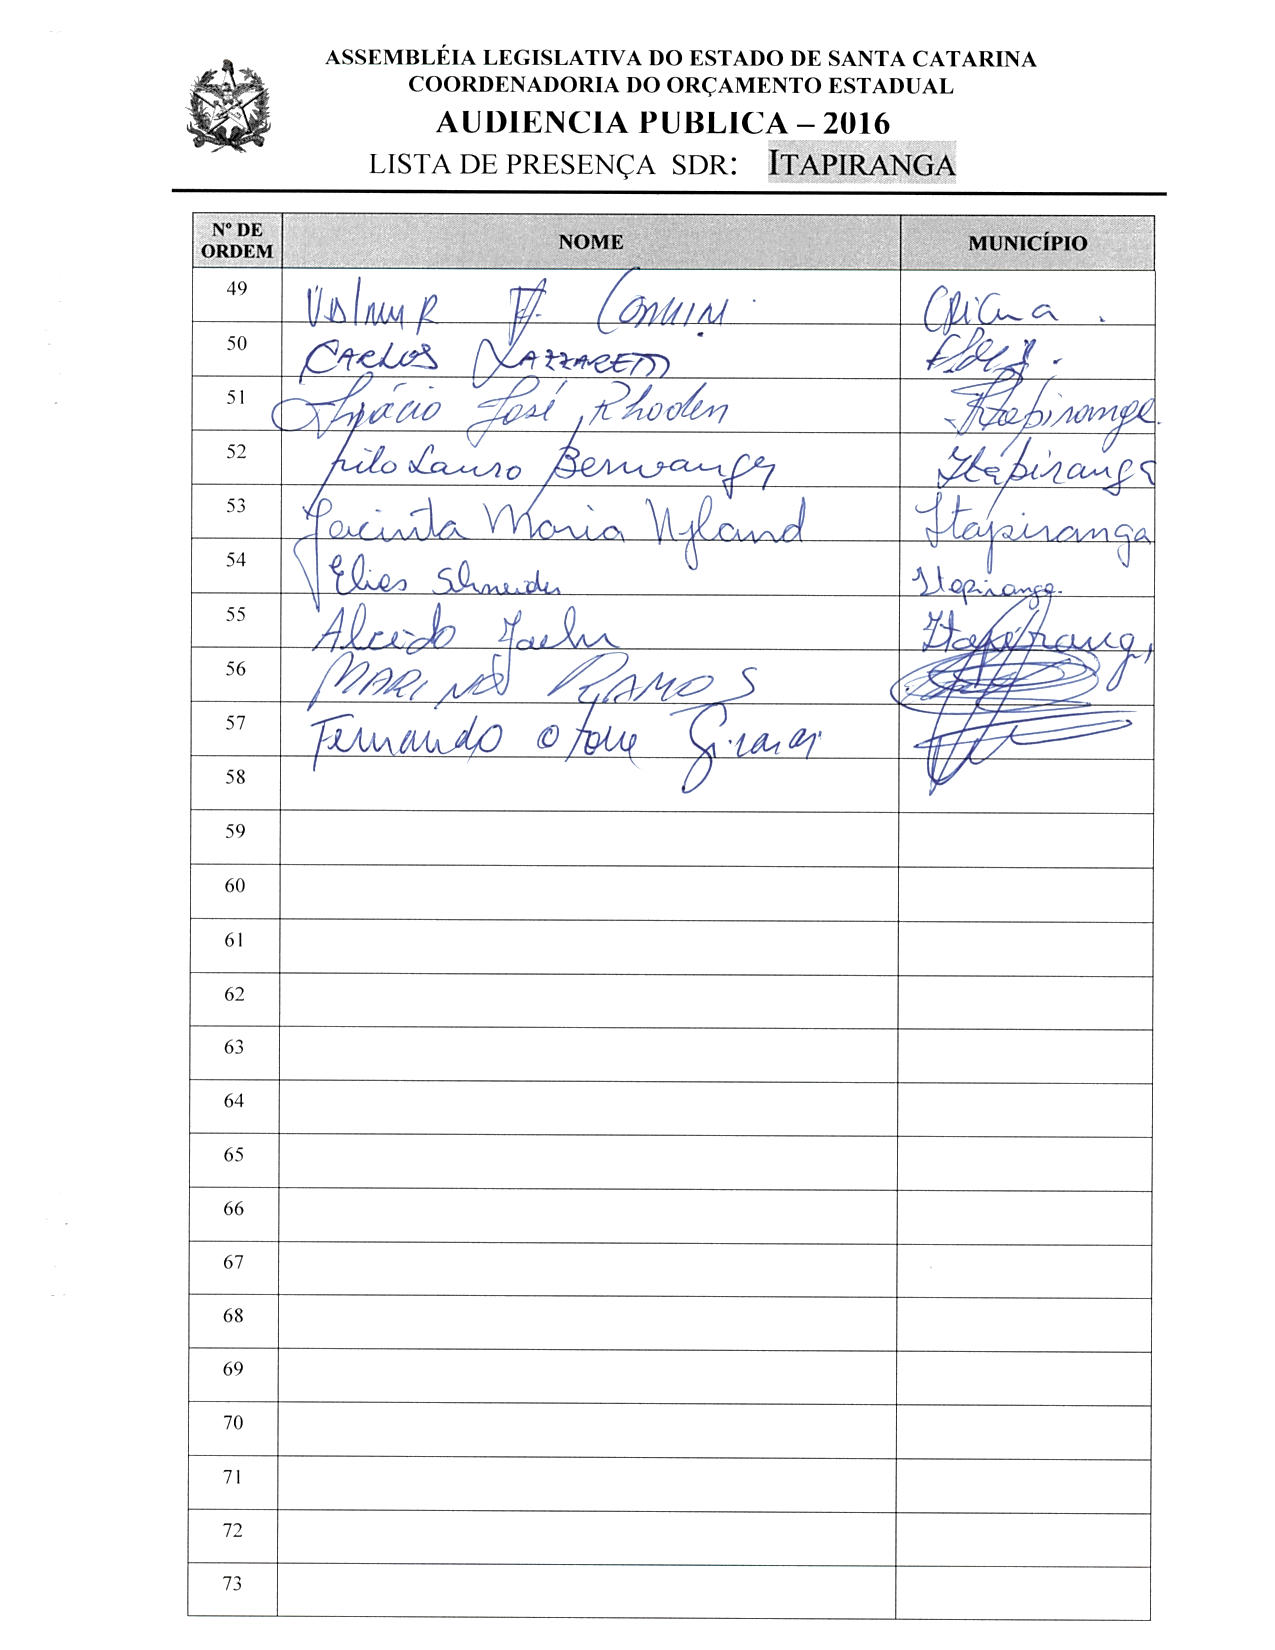 ASSEMBLÉIA LEGISLATIVA DO ESTADO DE SANTA CATARINA
COORDENADORIA DO ORÇAMENTO ESTADUAL
AUDIENCIA PUBLICA – 2016
LISTA DE PRESENÇA SDR: ITAPIRANGA
Nº DE ORDEM NOME MUNICÍPIO
49 Valmir F. Comin
50 CARLOS LAZZARETTI
51 Inácio José Rhoden Itapiranga
52 Lauro Berwanger Itapiranga
53 Jacinta Maria Nyland Itapiranga
54 Elias Schneider Itapiranga.
55 Alcedo Itapiranga
56 MARINO RAMOS
57 Fernando
58
59
60
61
62
63
64
65
66
67
68
69
70
71
72
73